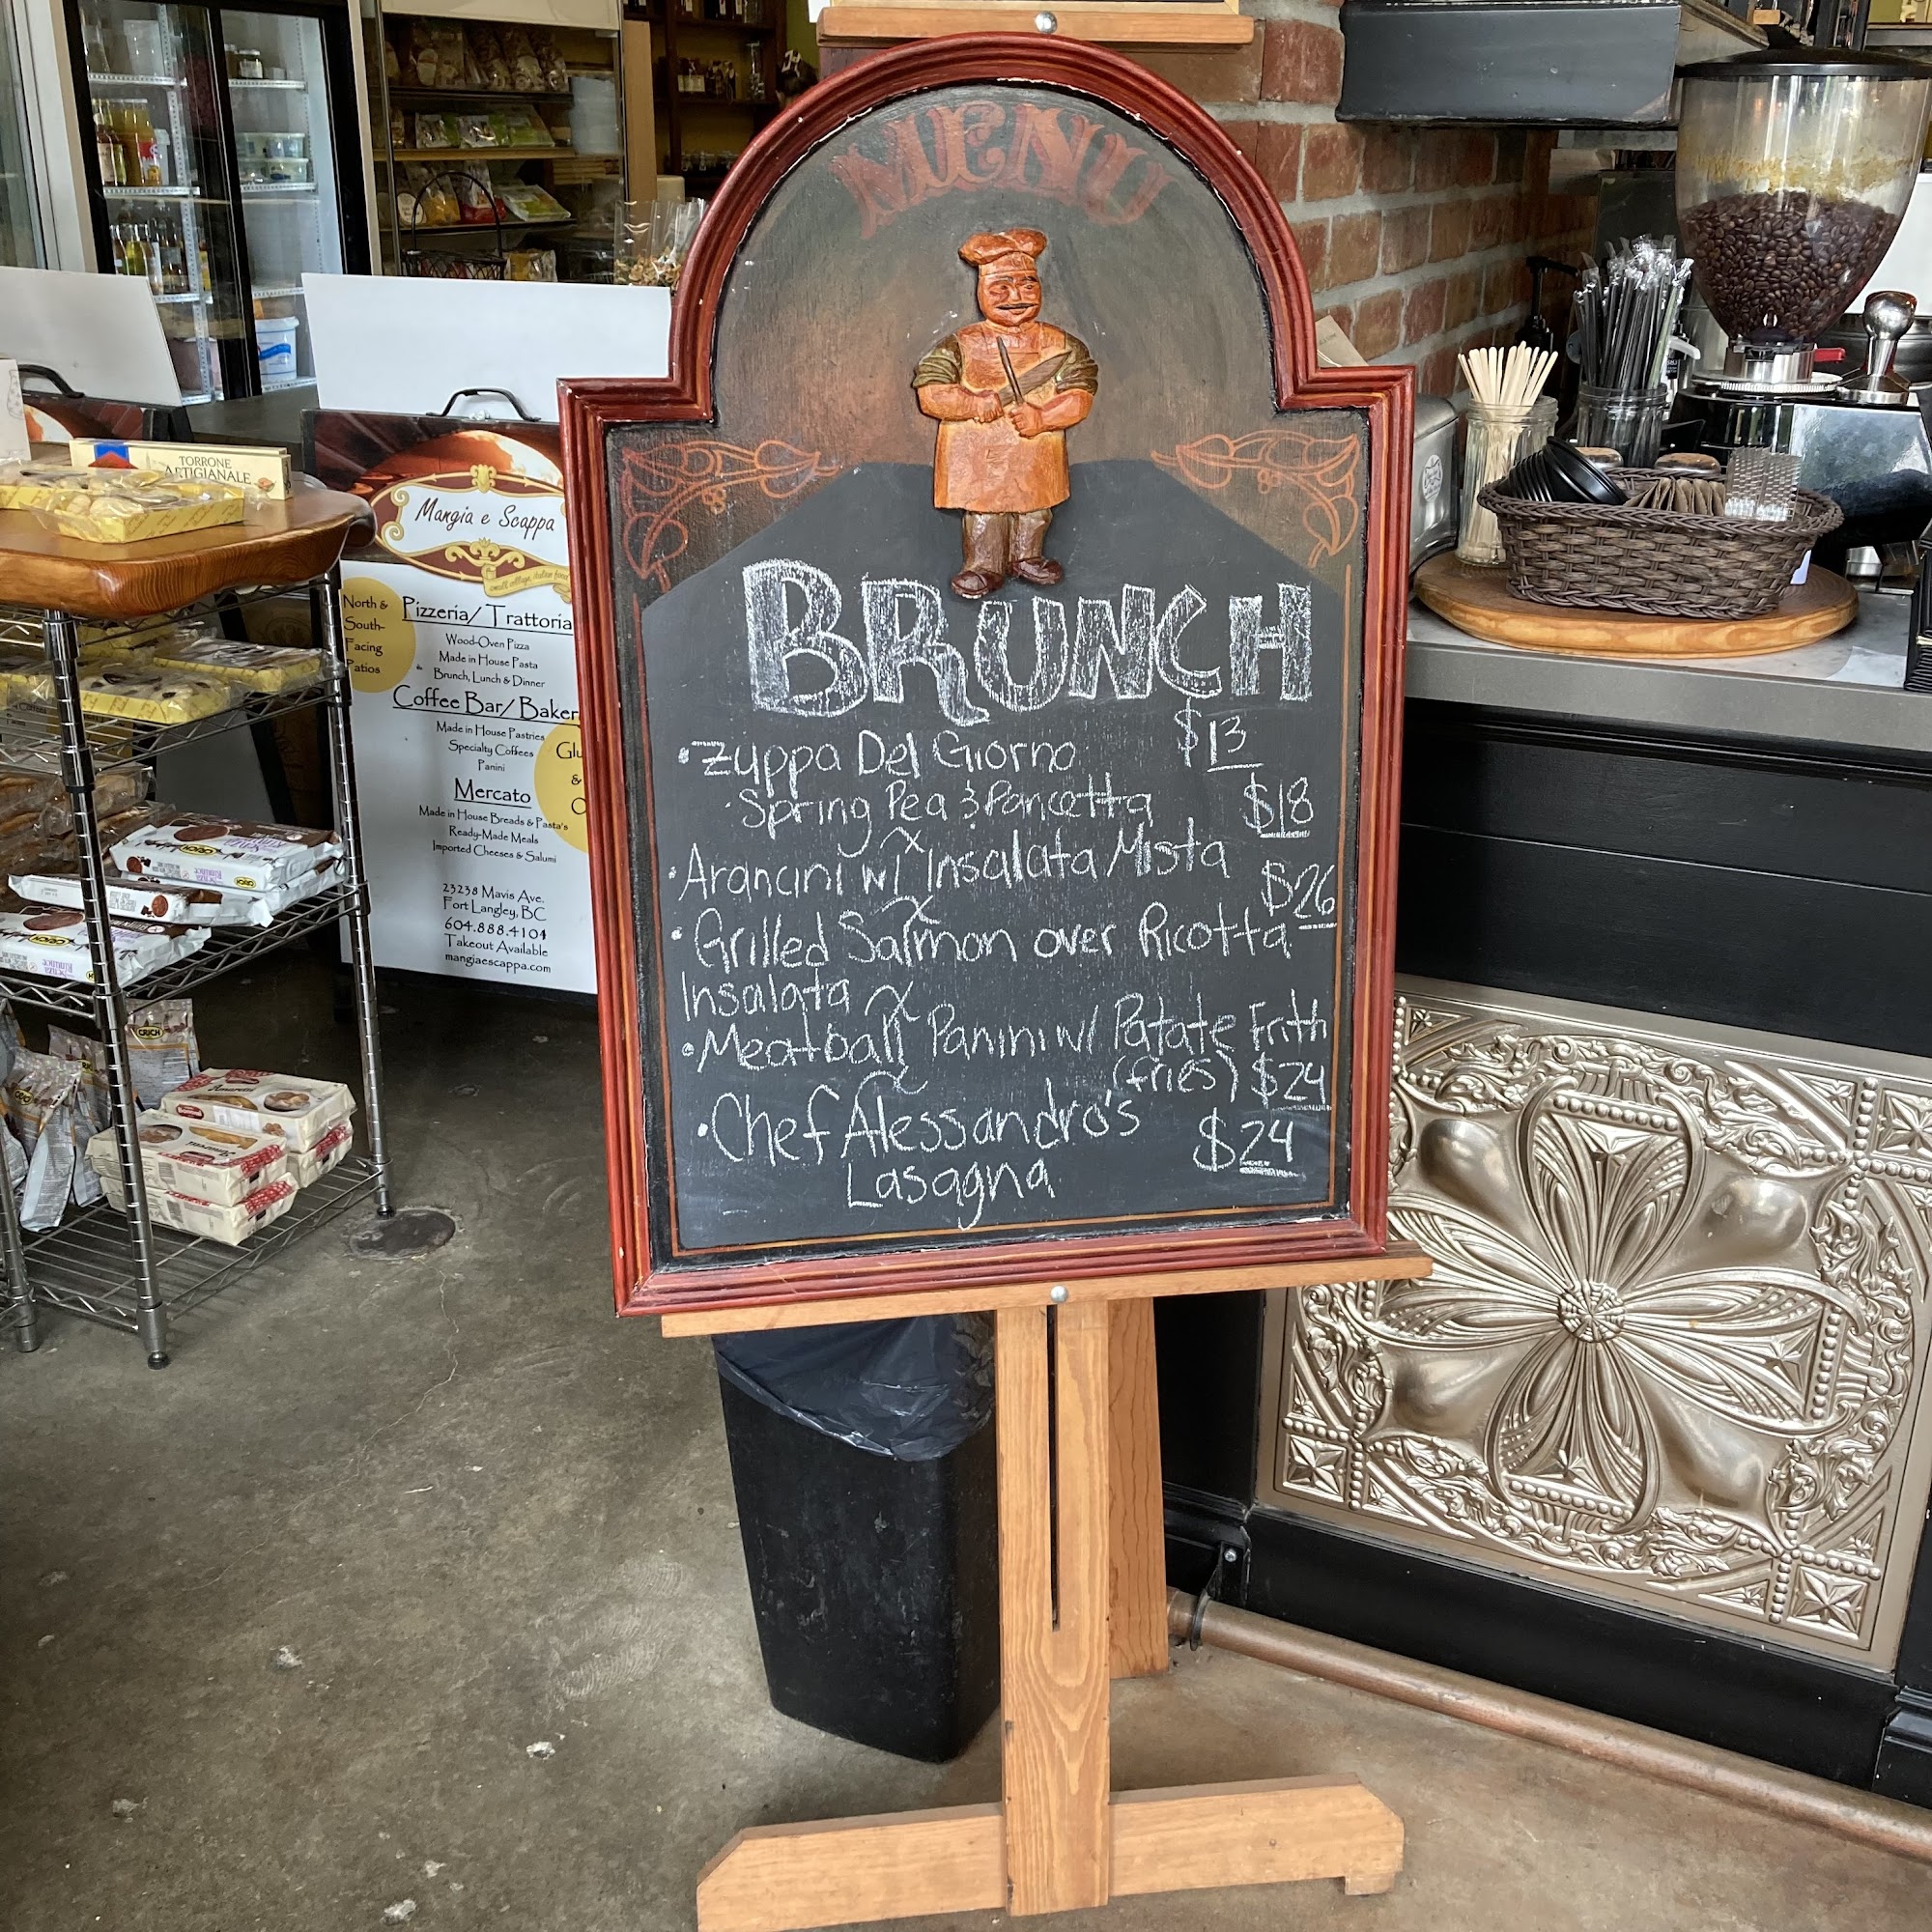 MENU
BRUNCH
•Zuppa Del Giorno $13
•Spring Pea & Pancetta $18
•Arancini w/ Insalata Mista
$26
•Grilled Salmon over Ricotta
Insalata
•Meatball Panini w/ Patate Fritti
(fries) $24
•Chef Alessandro's $24
Lasagna
TORRONE
ARTIGIANALE
Mangia e Scappa
small village, italian food
North &
South-
Facing
Patios
Pizzeria/ Trattoria
Wood-Oven Pizza
Made in House Pasta
Brunch, Lunch & Dinner
Coffee Bar/ Baker
Made in House Pastries
Specialty Coffees
Panini
Glu
&
Mercato
Made in House Breads & Pasta's
Ready-Made Meals
Imported Cheeses & Salumi
23238 Mavis Ave.
Fort Langley, BC
604.888.4104
Takeout Available
mangiaescappa.com
CRICH
CRICH
CRICH